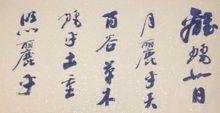 離麗也日
月麗乎天
百谷草木
麗乎土重
明麗乎